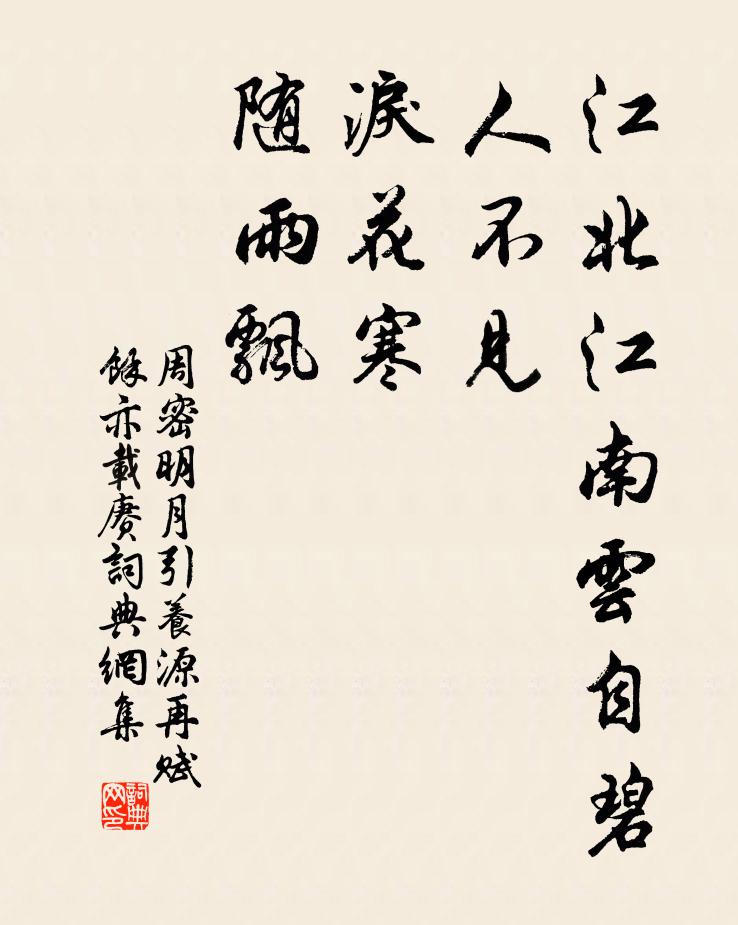 江北江南雲自碧
人不見
淚花寒
随雨飄
周密明月引養源再賦
餘亦載賡詞典網集
詞典
网印